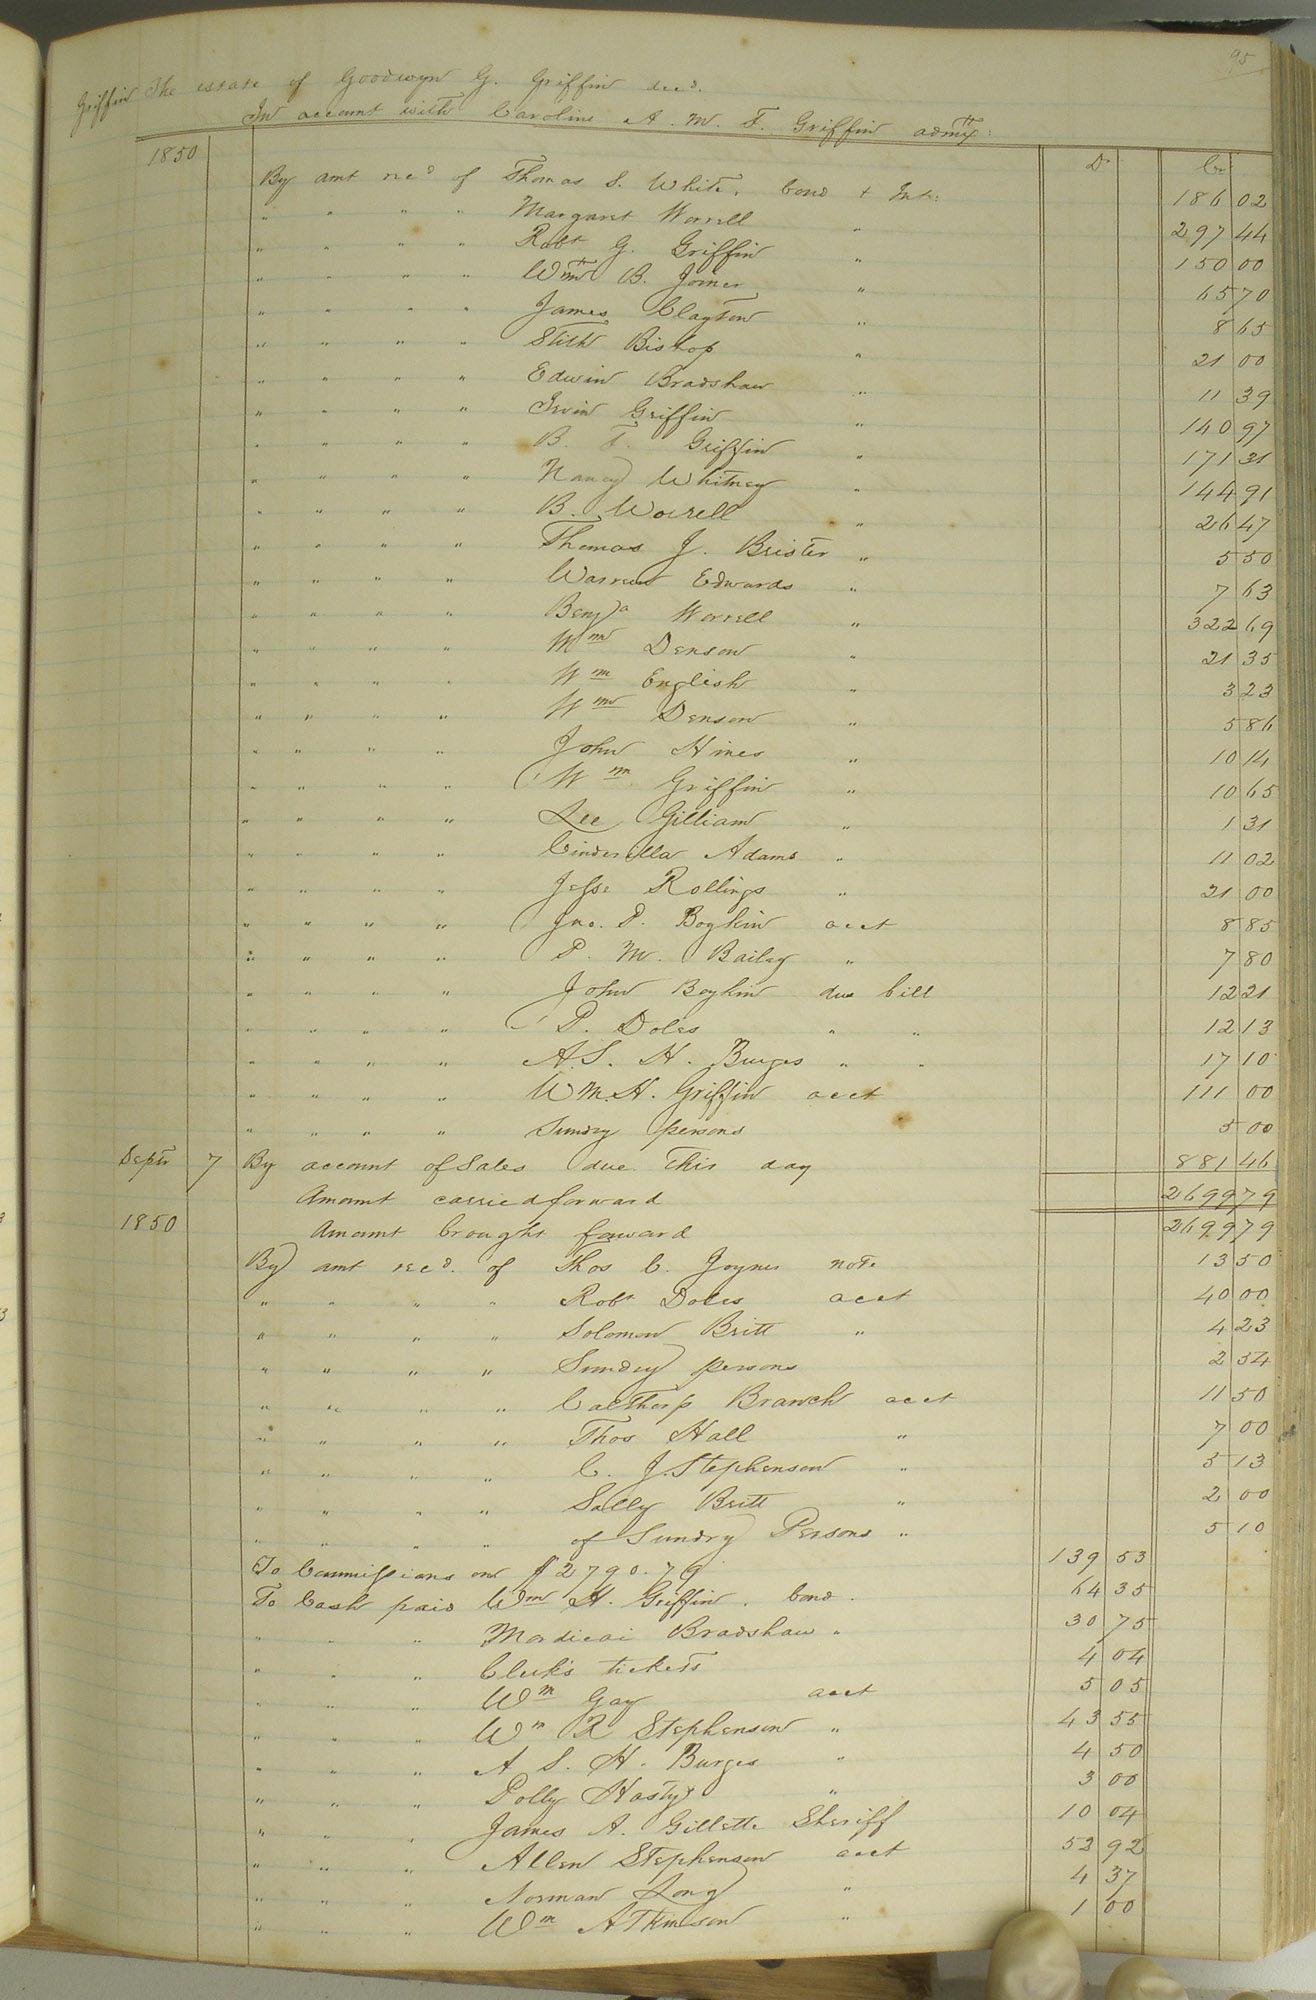 95
Griffin The estate of Goodwyn G. Griffin decd.
In account with Caroline A. M. F. Griffin admix:
1850 D Cr
By amt recd of Thomas S. White, bond + Int: 186 02
" " " " Margaret Worrell " 297 44
" " " " Robt G. Griffin " 150 00
" " " " Wm B. Joiner " 65 70
" " " " James Clayton " 8 65
" " " " Stith Bishop " 21 00
" " " " Edwin Bradshaw " 11 39
" " " " Irvin Griffin " 140 97
" " " " B. F. Griffin " 171 31
" " " " Nancy Whitney " 144 91
" " " " B. Worrell " 26 47
" " " " Thomas J. Brister " 5 50
" " " " Warren Edwards " 7 63
" " " " Benja Worrell " 322 69
" " " " Wm Denson " 21 35
" " " " Wm English " 3 23
" " " " Wm Denson " 5 86
" " " " John Hines " 10 14
" " " " Wm Griffin " 10 65
" " " " Lee Gilliam " 1 31
" " " " Cinderilla Adams " 11 02
" " " " Jesse Rollings " 21 00
" " " " Jno. D. Boykin acct 8 85
" " " " P. M. Bailey " 7 80
" " " " John Boykin due bill 12 21
" " " " P. Doles " " 12 13
" " " " A. S. H. Burges " " 17 10
" " " " Wm. H. Griffin acct 111 00
" " " " Sundry persons 5 00
Septr 7 By account of Sales due This day 881 46
Amount carried forward 2699 79
1850 Amount brought forward 2699 79
By amt recd. of Thos C. Joyner note 13 50
" " " " Robt Doles acct 40 00
" " " " Solomon Britt " 4 23
" " " " Sundry persons 2 54
" " " " Calthorp Branch acct 11 50
" " " " Thos Hall " 7 00
" " " " C. J. Stephenson " 5 13
" " " " Sally Britt " 2 00
" " " " of Sundry Persons " 5 10
To Commissions on $2790.79 139 53
To Cash paid Wm H. Griffin, bond. 64 35
" " " Mordicai Bradshaw " 30 75
" " " Clerks tickets 4 04
" " " Wm Gay acct 5 05
" " " Wm R Stephenson " 43 55
" " " A S. H. Burges " 4 50
" " " Polly Hasty " 3 00
" " " James A. Gillette Sheriff 10 04
" " " Allen Stephenson acct 52 92
" " " Norman Long " 4 37
" " " Wm Atkinson " 1 00